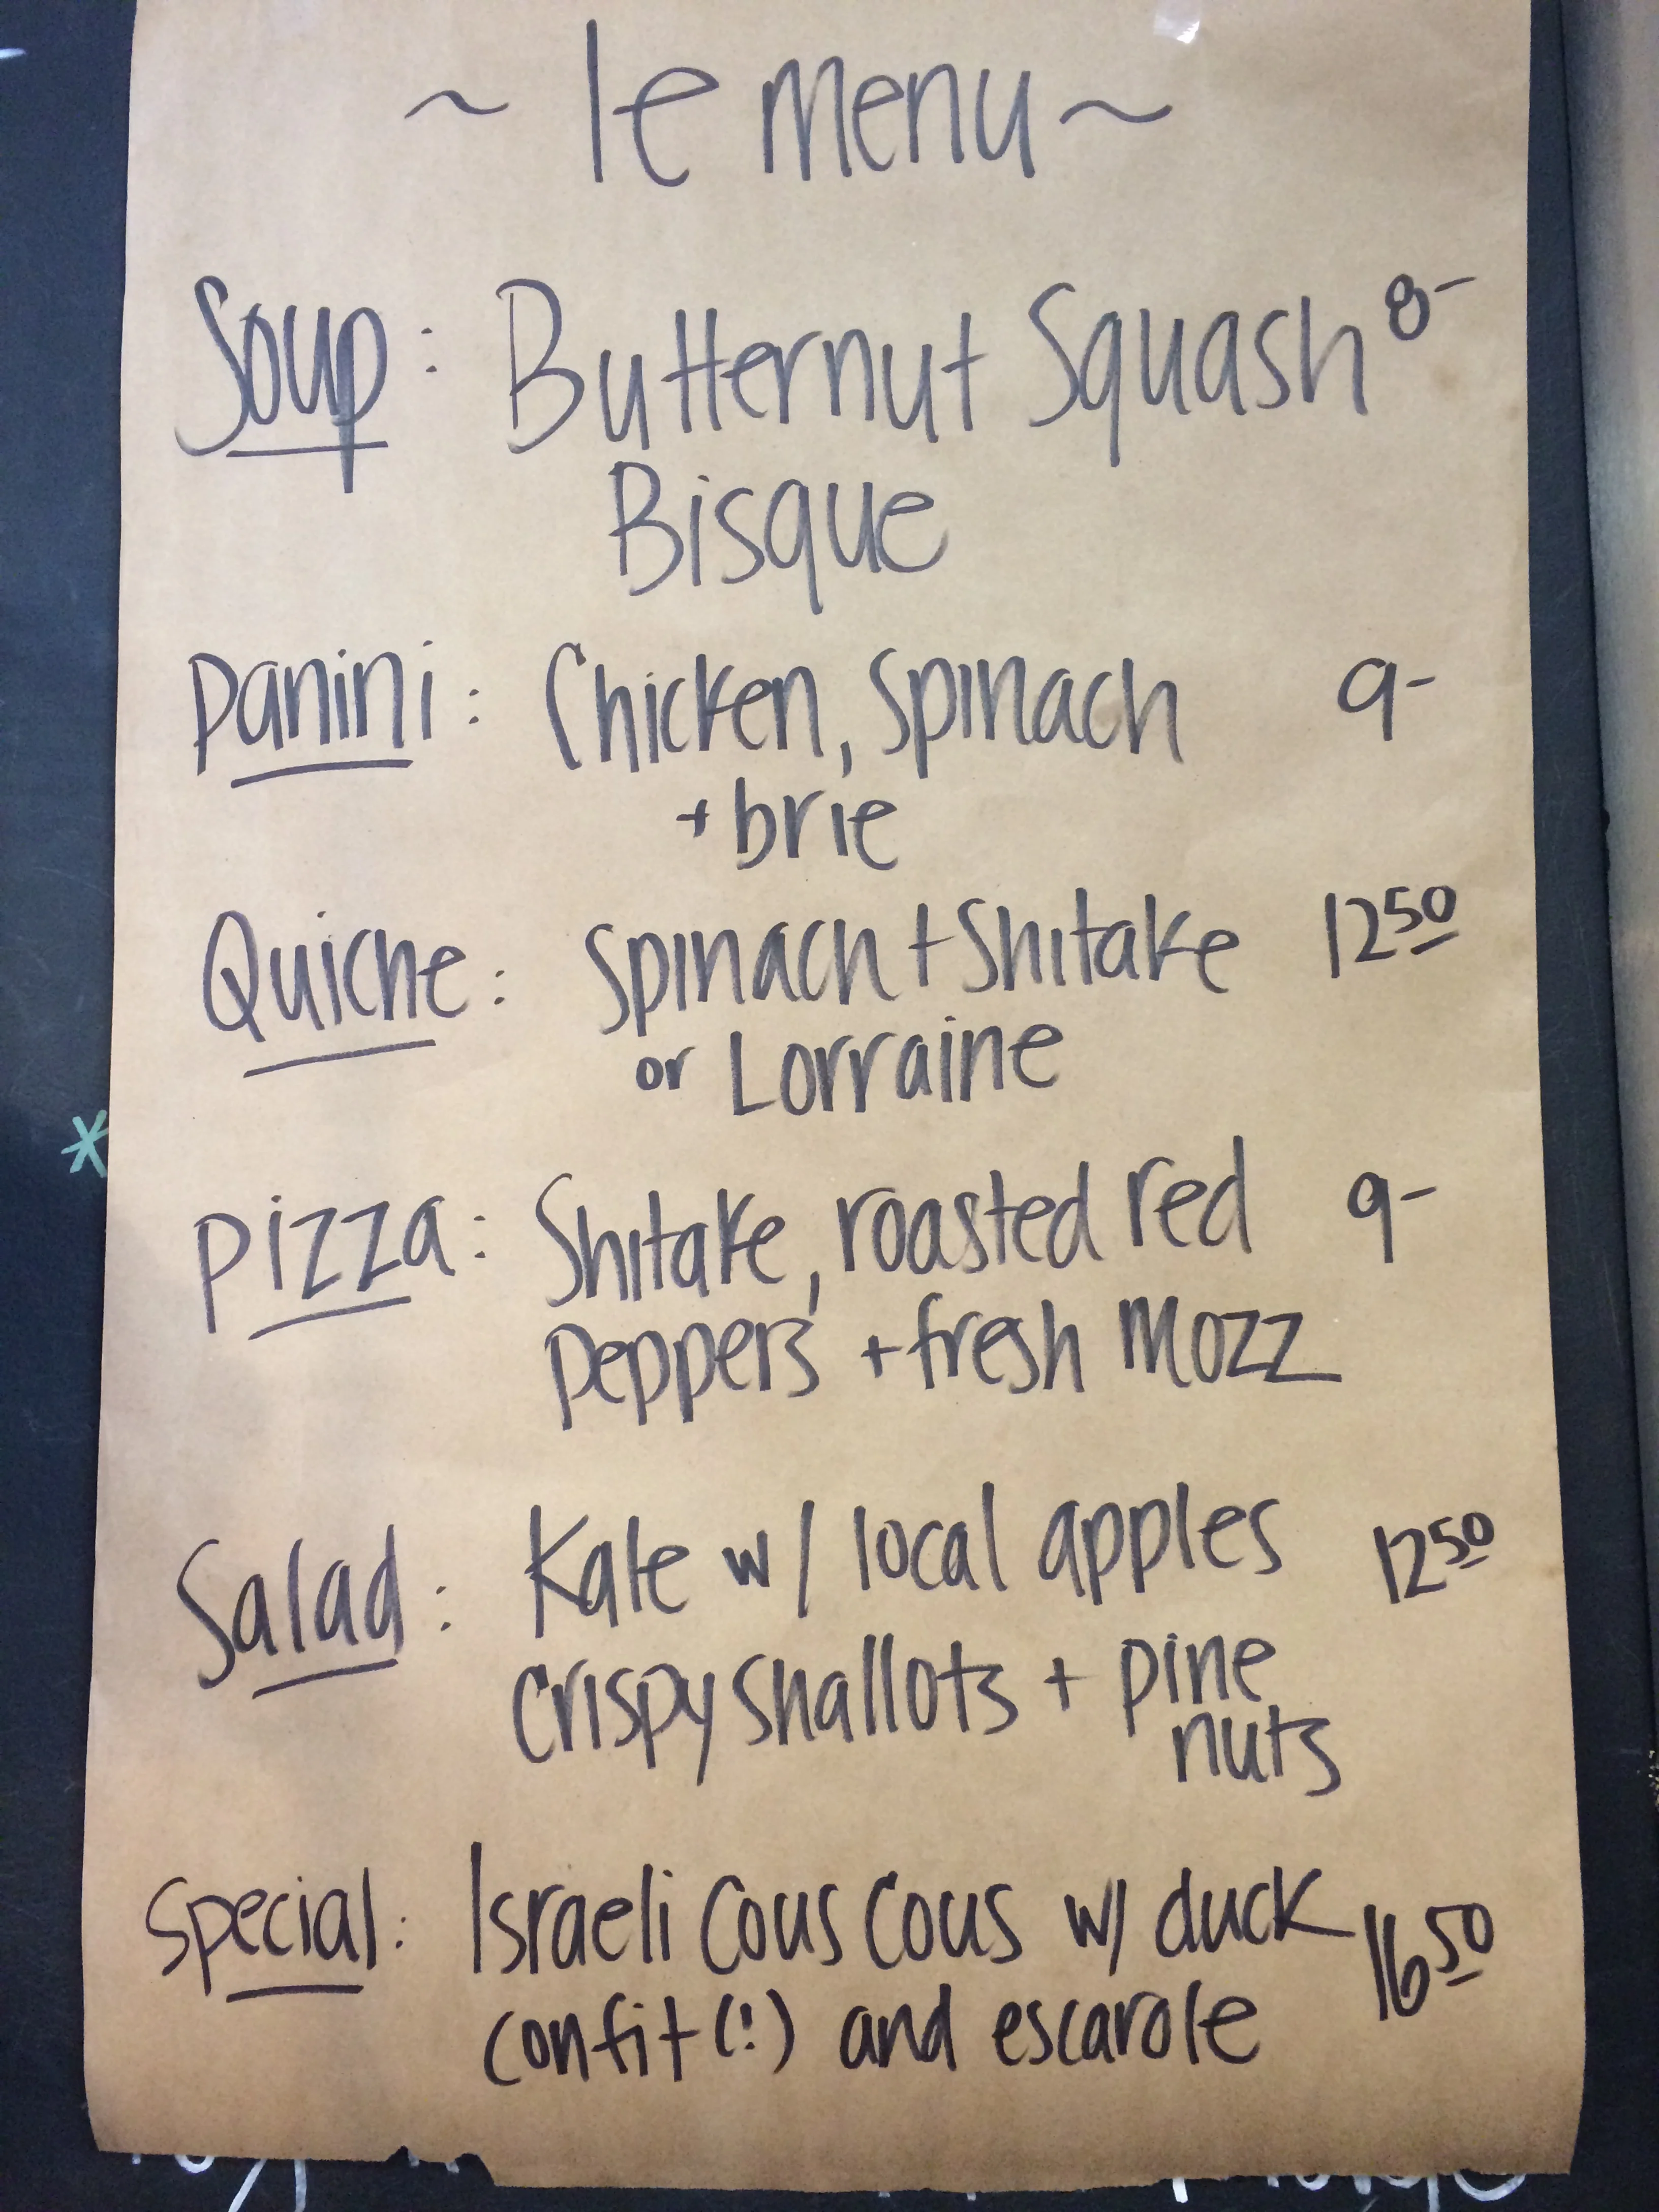 ~ le menu ~
Soup: Butternut Squash 8-
Bisque
Panini: Chicken, Spinach 9-
+ brie
Quiche: Spinach + Shitake 12 50
or Lorraine
Pizza: Shitake, roasted red 9-
peppers + fresh mozz
Salad: Kale w/ local apples 12 50
crispy shallots + pine
nuts
Special: Israeli Cous Cous w/ duck 16 50
confit (!) and escarole